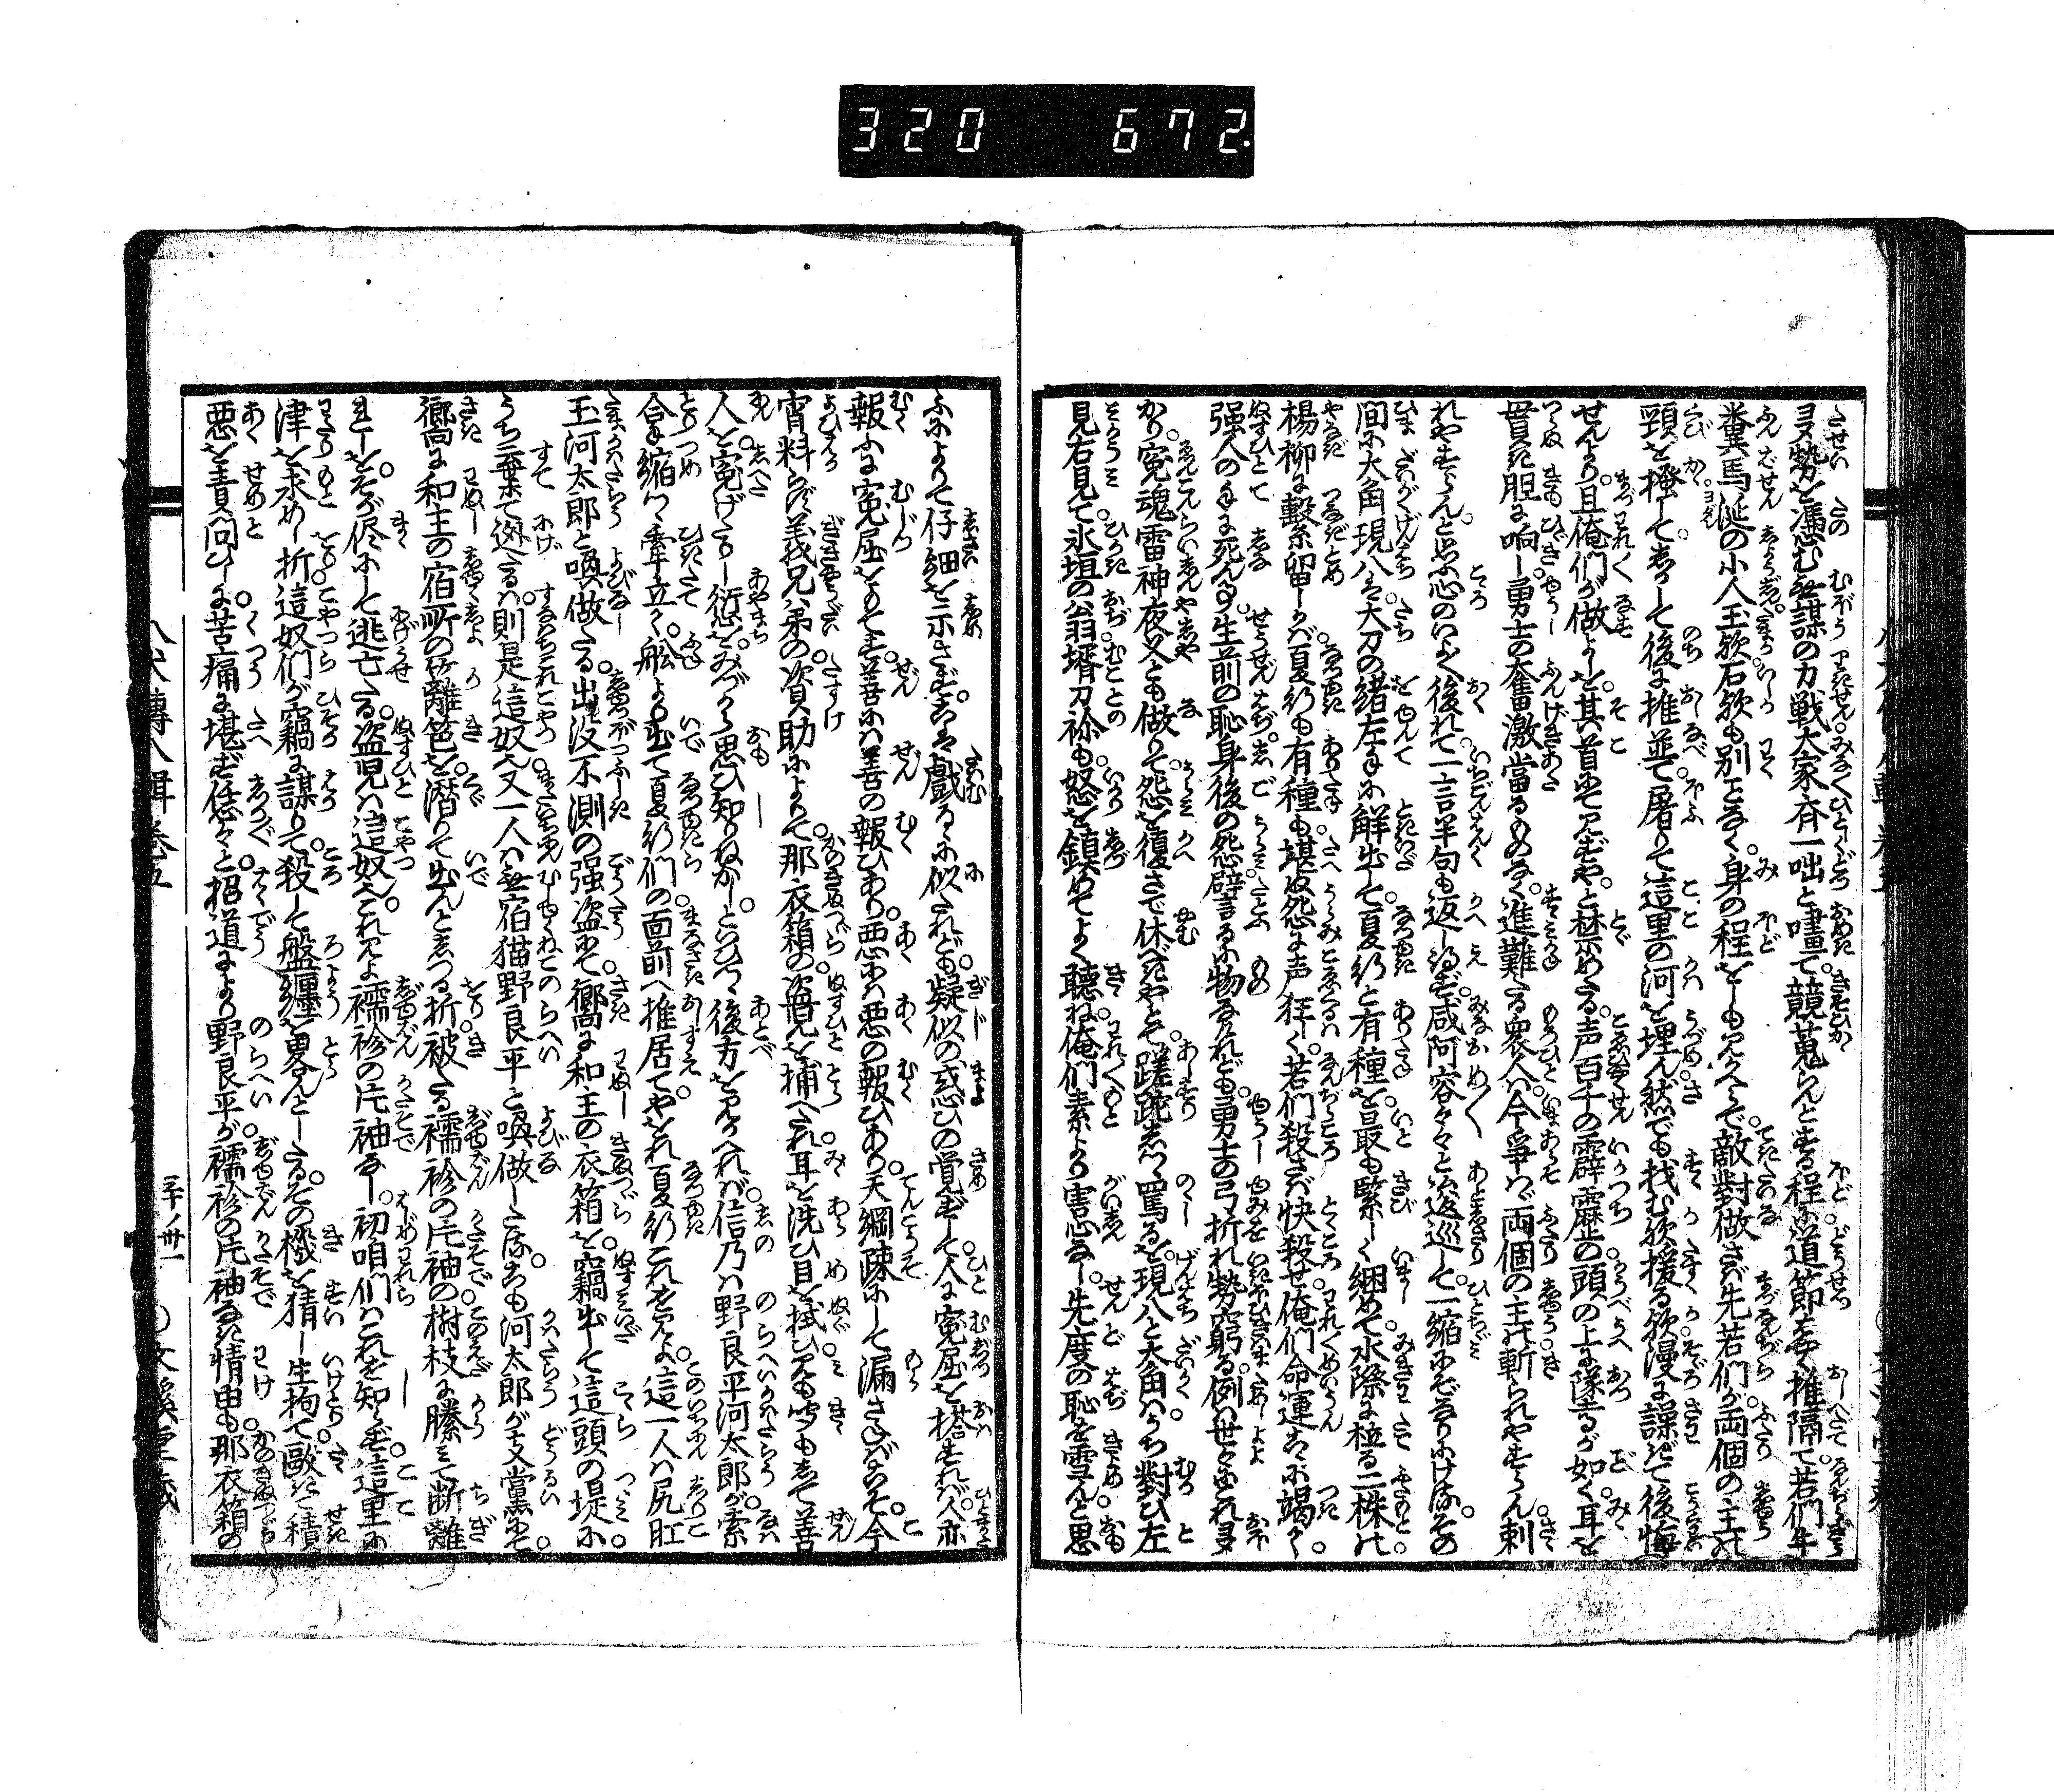 320 672.
る勢を憑む無謀の力戦大家齐一咄と嘨て競蒐らんとする程に道節急に推隔て若們牛
糞馬涎の小人玉欤石欤も別ことなく身の程をしも見かへらで敵對做さば先若們が両個の主の
頸を掻してしかして後に推並て屠りて這里の河を埋ん然でも找む欤援る欤漫に譟ぎて後悔
せんより且俺們が做よしを其首にて見ずやと禁めたる声百千の霹靂の頭の上に墜るが如く耳を
貫き胆に响し勇士の奮激當るものなく進難たる衆人は今爭はば両個の主の斬られやすらん刺
れやすらんと思ふ心のいよよ後れて一言半句も返し得ず咸阿容々々と逡巡して一縮にぞなりにける。その
間に大角現八は大刀の緒左手に解出して夏行と有種を最も緊しく綑めて水際に粒る二株の
楊柳に繫留しかば夏行も有種も堪ぬ怨に声狂く若們殺さば快殺せ俺們命運ここに竭て
强人の手に死ぬるは生前の恥身後の怨譬るに物なけれども勇士の弓折れ勢窮る例は世々にこれ多
かり寃魂雷神夜叉とも做りて怨を復さで休べきやとて蹉跎しつつ罵るを現八と大角はうち對ひ左
見右見て氷垣の翁壻刀祢も怒を鎮めてよく聴ね俺們素より害心なし先度の恥を雪んと思
ふによりて仔細を示さず。ここは戲るるに似たれども疑似の惑ひの覚ずして人に寃屈を搭すれば人亦
報ふに寃屈をもてす善には善の報ひあり悪には悪の報ひあり天網疎にして漏さずこそ今
宵料らず義兄弟の資助によりて那衣箱の盗児を捕へたれ耳を洗ひ目を拭ひ見も聞もして善
人を寃げたる愆をみづから思ひ知りねかしといひつつ後方を見かへれば信乃は野良平河太郎が索
合手縮め牽立て舩より出て夏行們の面前へ推居てやをれ夏行これを見よ這一人は尻肛
玉河太郎と喚做たる出没不測の强盗にて嚮に和主の衣箱を竊出して這頭の堤に
うち棄て迯たるは則是這奴又一人は無宿猫野良平と喚做したる。ここも河太郎が支黨にて
嚮に和主の宿所の笆籬を潜りて出んとしつる折被たる襦袢の片袖の樹枝に縢みて断離
れしをそが侭にして逃亡たる盗児は這奴なりこれ見よ襦袢の片袖なし初咱們はこれを知らず這里に
津を求めし折這奴們が竊に謀りて殺して盤纏を畧んとしたるその機を猜し生拘て毆き積
悪を責問ひしに苦痛に堪ず恁々と招道により野良平が襦袢の片袖なき情由も那衣箱の
八犬傳八輯卷五
三十ノ卅一
○文溪堂藏